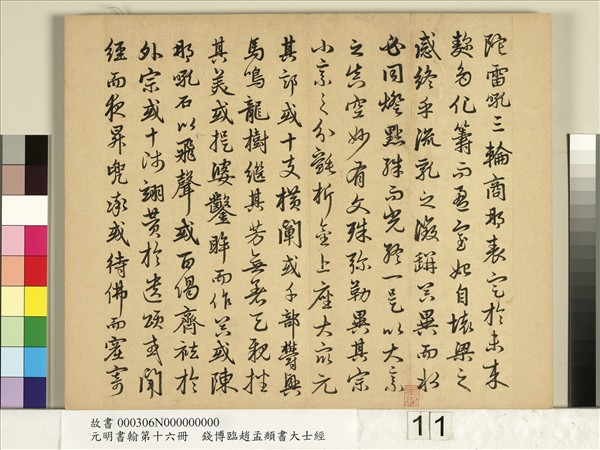 陀雷吼三輪商那表定於未來
麴多化籌而盈室始自壞梁之
感終乎流乳之徵辯其異而水
必同燈點殊而光終一是以大乘
之真空妙有文殊弥勒異其宗
小乘之分氎折金上座大眾元
其部或十支橫闡或千部鬱興
馬鳴龍樹繼其芳無著天親播
其美或提婆鑿眸而作器或陳
那吼石以飛聲或百偈齊祛於
外宗或十師翊贊於遺頌或聞
經而夜昇兜率或待佛而窟寄
故書 000306N000000000
元明書翰第十六冊 錢博臨趙孟頫書大士經
11